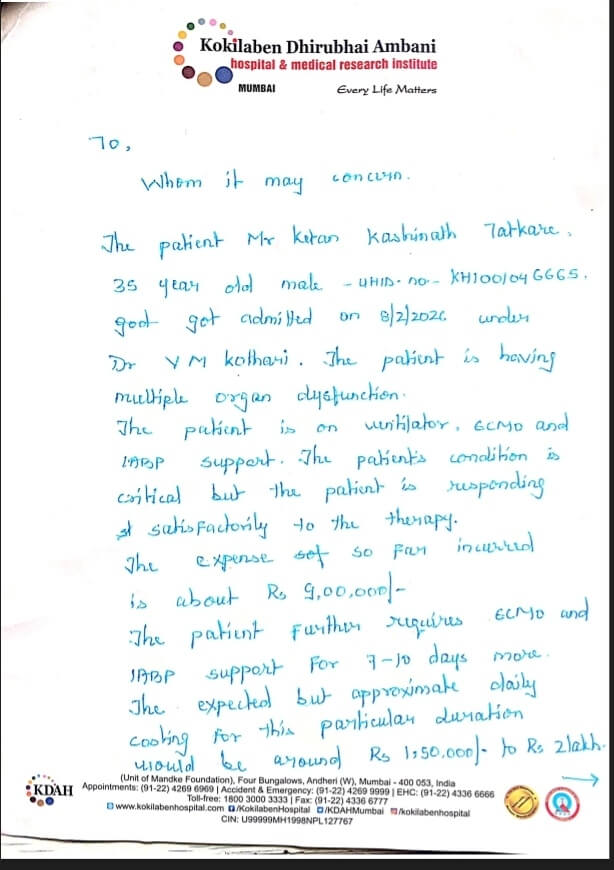 Kokilaben Dhirubhai Ambani
hospital & medical research institute
MUMBAI Every Life Matters
To,
Whom it may concern.
The patient Mr Ketan Kashinath Tatkare,
35 year old male - UHID. no - KH1001046665.
got admitted on 8/2/2026 under
Dr V M Kothari. The patient is having
multiple organ dysfunction.
The patient is on ventilator, ECMO and
IABP support. The patient's condition is
critical but the patient is responding
satisfactorily to the therapy.
The expense so far incurred
is about Rs 9,00,000/-
The patient further requires ECMO and
IABP support for 7-10 days more.
The expected but approximate daily
costing for this particular duration
would be around Rs 1,50,000/- to Rs 2lakh.
(Unit of Mandke Foundation), Four Bungalows, Andheri (W), Mumbai - 400 053, India
KDAH Appointments: (91-22) 4269 6969 | Accident & Emergency: (91-22) 4269 9999 | EHC: (91-22) 4336 6666
Toll-free: 1800 3000 3333 | Fax: (91-22) 4336 6777
www.kokilabenhospital.com /KokilabenHospital /KDAHMumbai /kokilabenhospital
CIN: U99999MH1998NPL127767